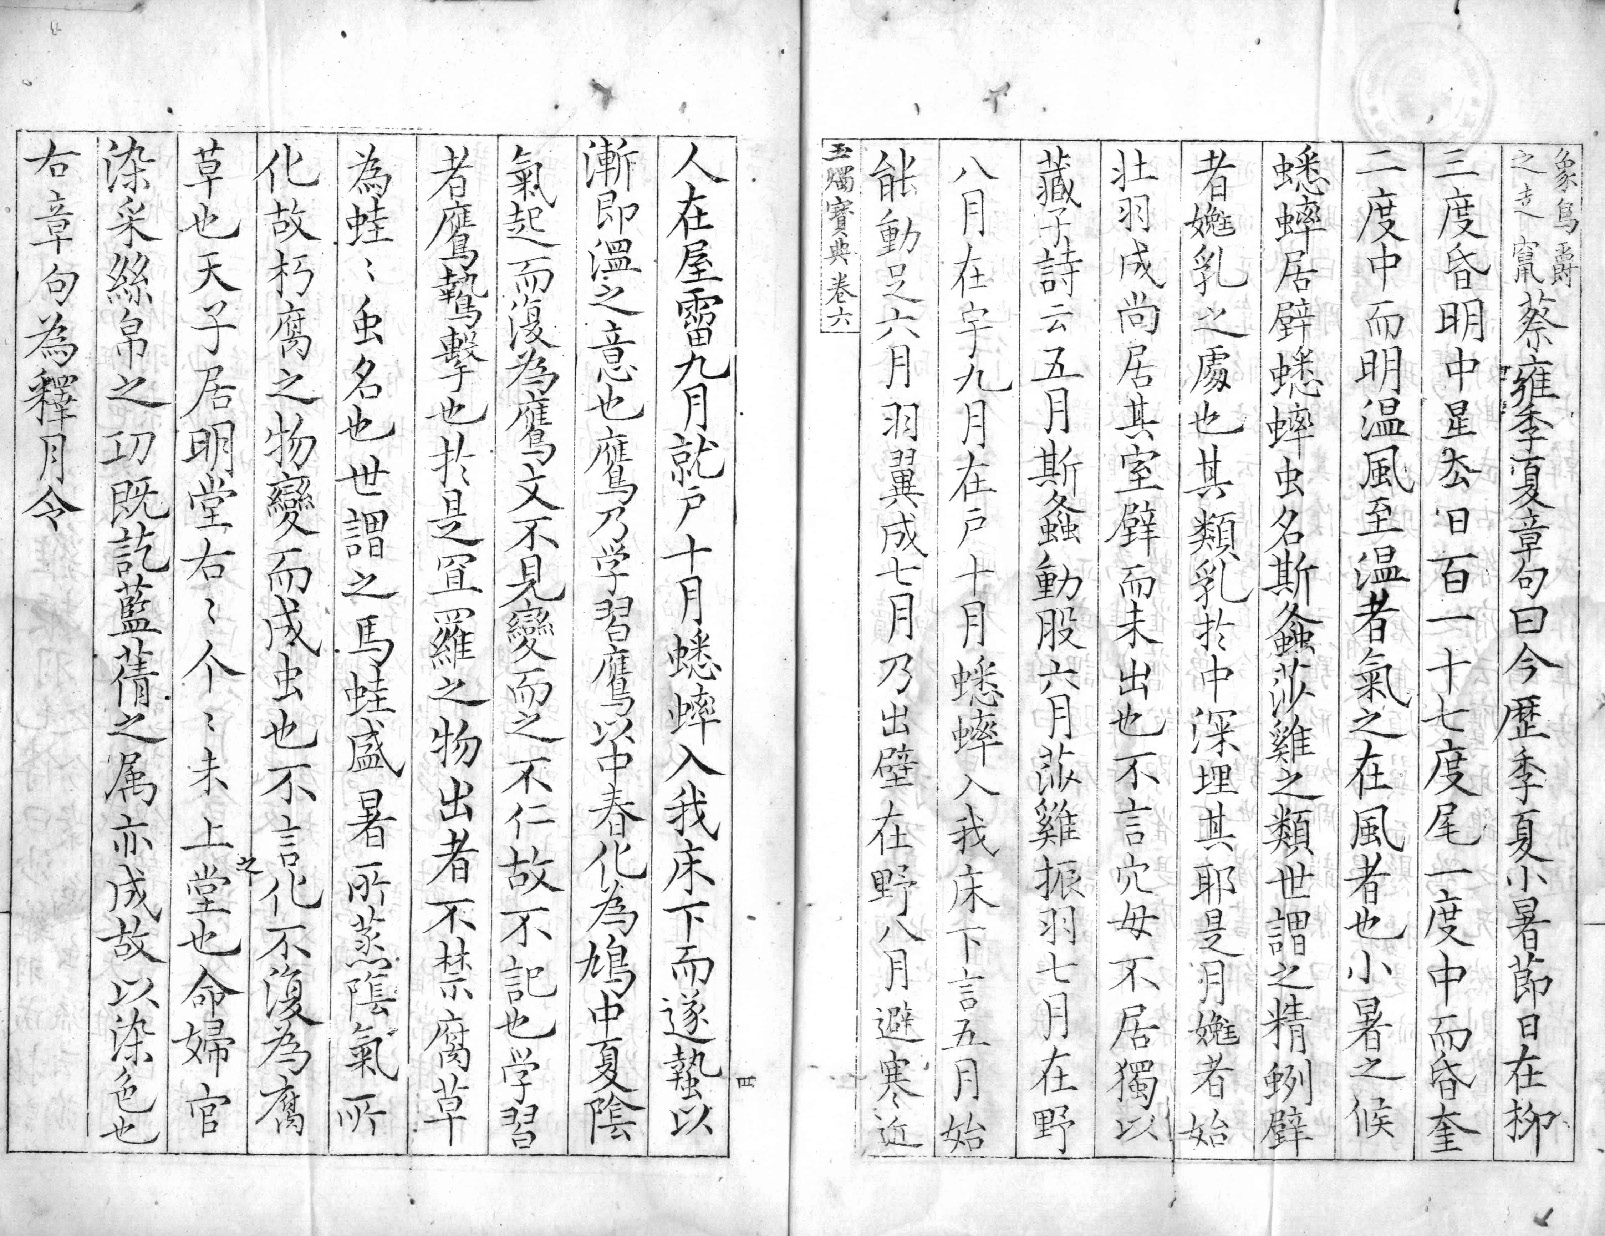 象鳥爵
之走竄蔡雍季夏章句曰今歷季夏小暑節日在柳
三度昏明中星去日百一十七度尾一度中而昏奎
二度中而明温風至温者氣之在風者也小暑之候
蟋蟀居壁蟋蟀虫名斯螽莎雞之類世謂之精蛚壁
者嬔乳之處也其類乳扵中深埋其耶是月嬔者始
壮羽成尚居其室壁而未出也不言穴毋不居獨以
藏子詩云五月斯螽動股六月莎雞振羽七月在野
八月在宇九月在戶十月蟋蟀入我床下言五月始
能動足六月羽翼成七月乃出壁在野八月避寒近
玉燭寶典卷六
人在屋霤九月就戶十月蟋蟀入我床下而遂蟄以
漸即溫之意也鷹乃学習鷹以中春化為鳩中夏陰
氣起而復為鷹文不見變而之不仁故不記也学習
者鷹鷙擊也扵是罝羅之物出者不禁腐草
為蛙〻虫名也世謂之馬蛙盛暑所蒸陰氣所
化故朽腐之物變而成虫也不言化不復為腐
草也天子居明堂右〻个〻未上堂之也命婦官
染采絲帛之功既訖藍蒨之属亦成故以染色也
右章句為釋月令
四